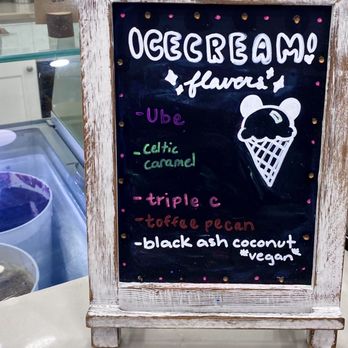 ICECREAM!
flavors
- Ube
- Celtic
caramel
- triple c
- toffee pecan
- black ash coconut
*vegan*